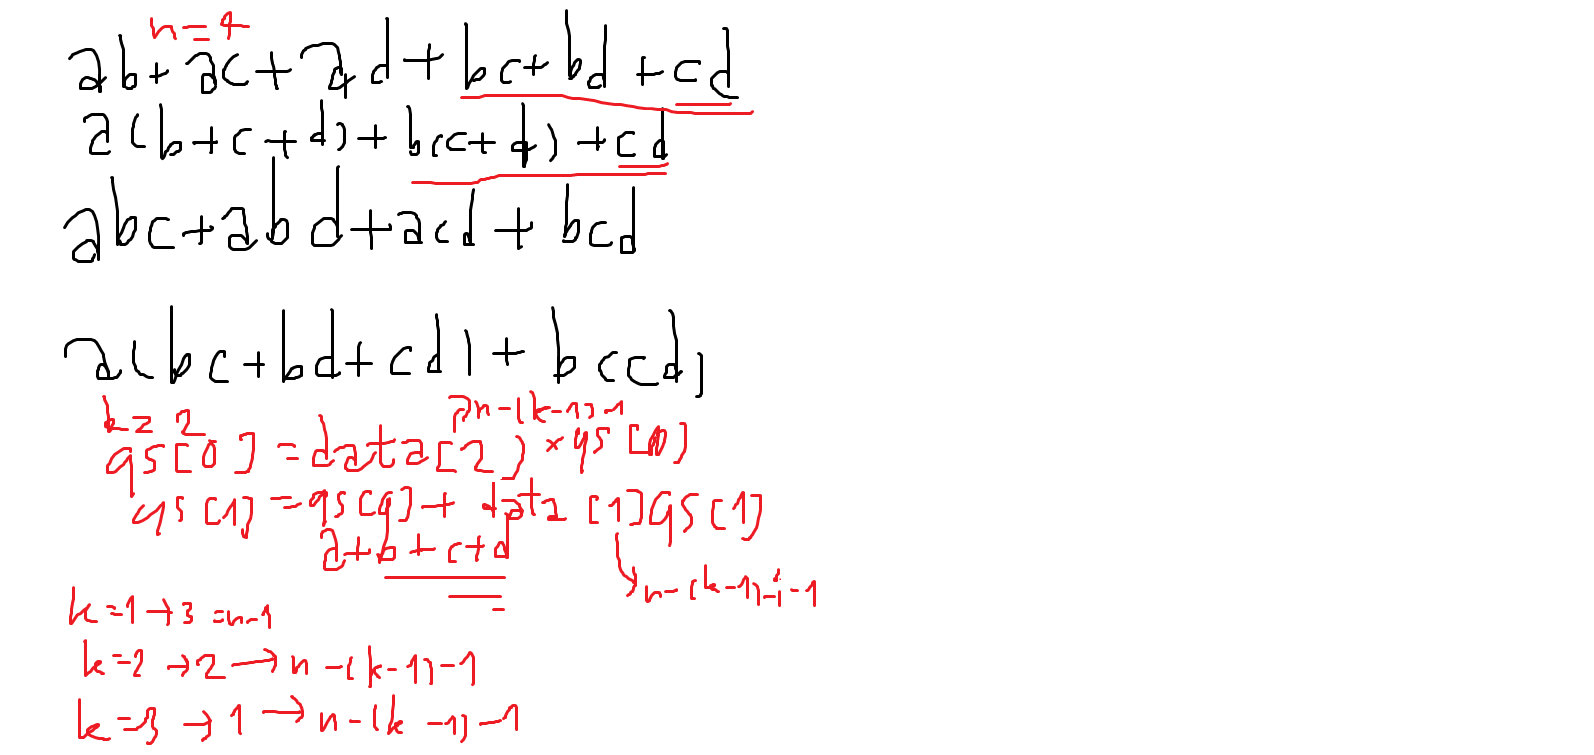 n=4
ab+ac+ad+bc+bd+cd
a(b+c+d)+b(c+d)+cd
abc+abd+acd+bcd
a(bc+bd+cd)+b(cd)
k=2
n-(k-1)-1
qs[0]=data[2]×qs[0]
qs[1]=qs[0]+data[1]qs[1]
a+b+c+d
n-(k-1)-i-1
k=1→3=n-1
k=2→2→n-(k-1)-1
k=3→1→n-(k-1)-1